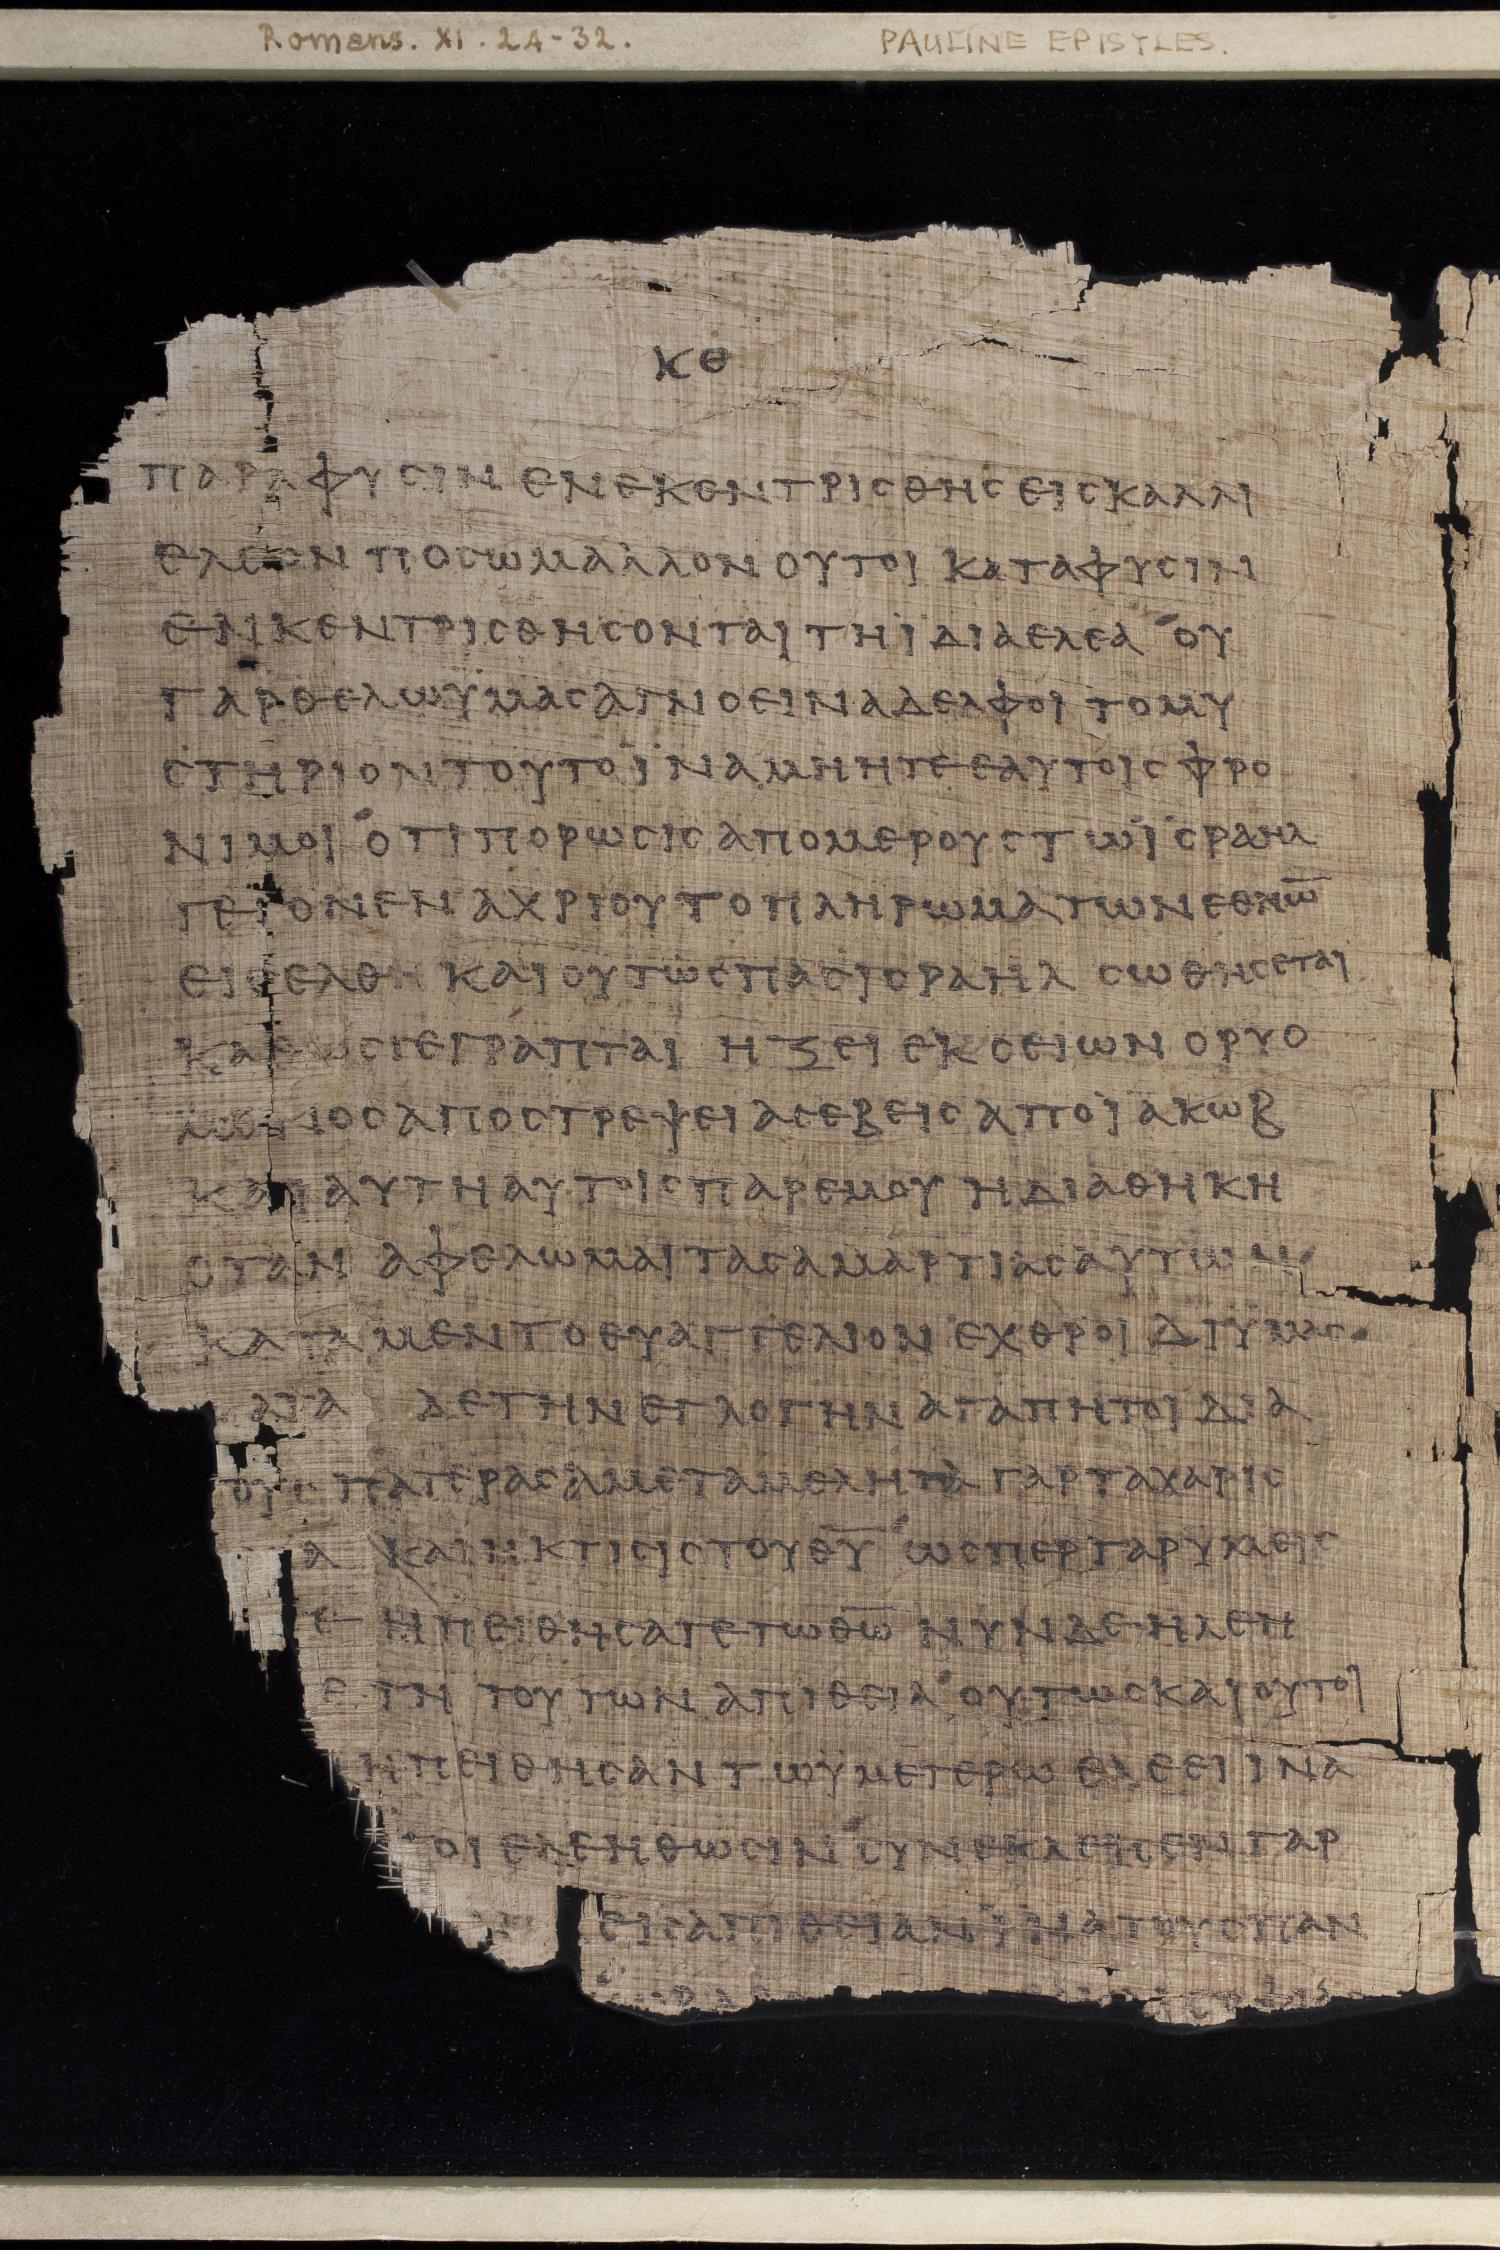 Romans. XI. 24-32. PAULINE EPISTLES.
κθ
παρα φυσιν ενεκεντρισθης εις καλλι
ελεον ποσω μαλλον ουτοι κατα φυσιν
ενκεντρισθησονται τη ϊδια ελεα ου
γαρ θελω ϋμας αγνοειν αδελφοι το μυ
στηριον τουτο ϊνα μη ητε εαυτοις φρο
νιμοι οτι πορωσις απο μερους τω ϊσραηλ
γεγονεν αχρι ου το πληρωμα των εθνω̅
εισελθη και ουτως πας ισραηλ σωθησεται
καθως γεγραπται ηξει εκ σειων ο ρυο
μενος αποστρεψει ασεβεις απο ϊακωβ
και αυτη αυτοις παρ εμου η διαθηκη
οταν αφελωμαι τας αμαρτιας αυτων
κατα μεν το ευαγγελιον εχθροι δι ϋμας
κατα δε την εγλογην αγαπητοι δια
τους πατερας αμεταμελητα γαρ τα χαρισ
α και η κτισις του θ̅υ̅ ωσπερ γαρ υμεις
ε ηπειθησατε τω θ̅ω̅ νυν δε ηλεη
ε τη τουτων απιθεια ουτως και ουτοι
ηπειθησαν τω ϋμετερω ελεει ινα
τοι ελεηθωσιν συνεκλεισεν γαρ
εις απιθειαν ϊνα τους παν